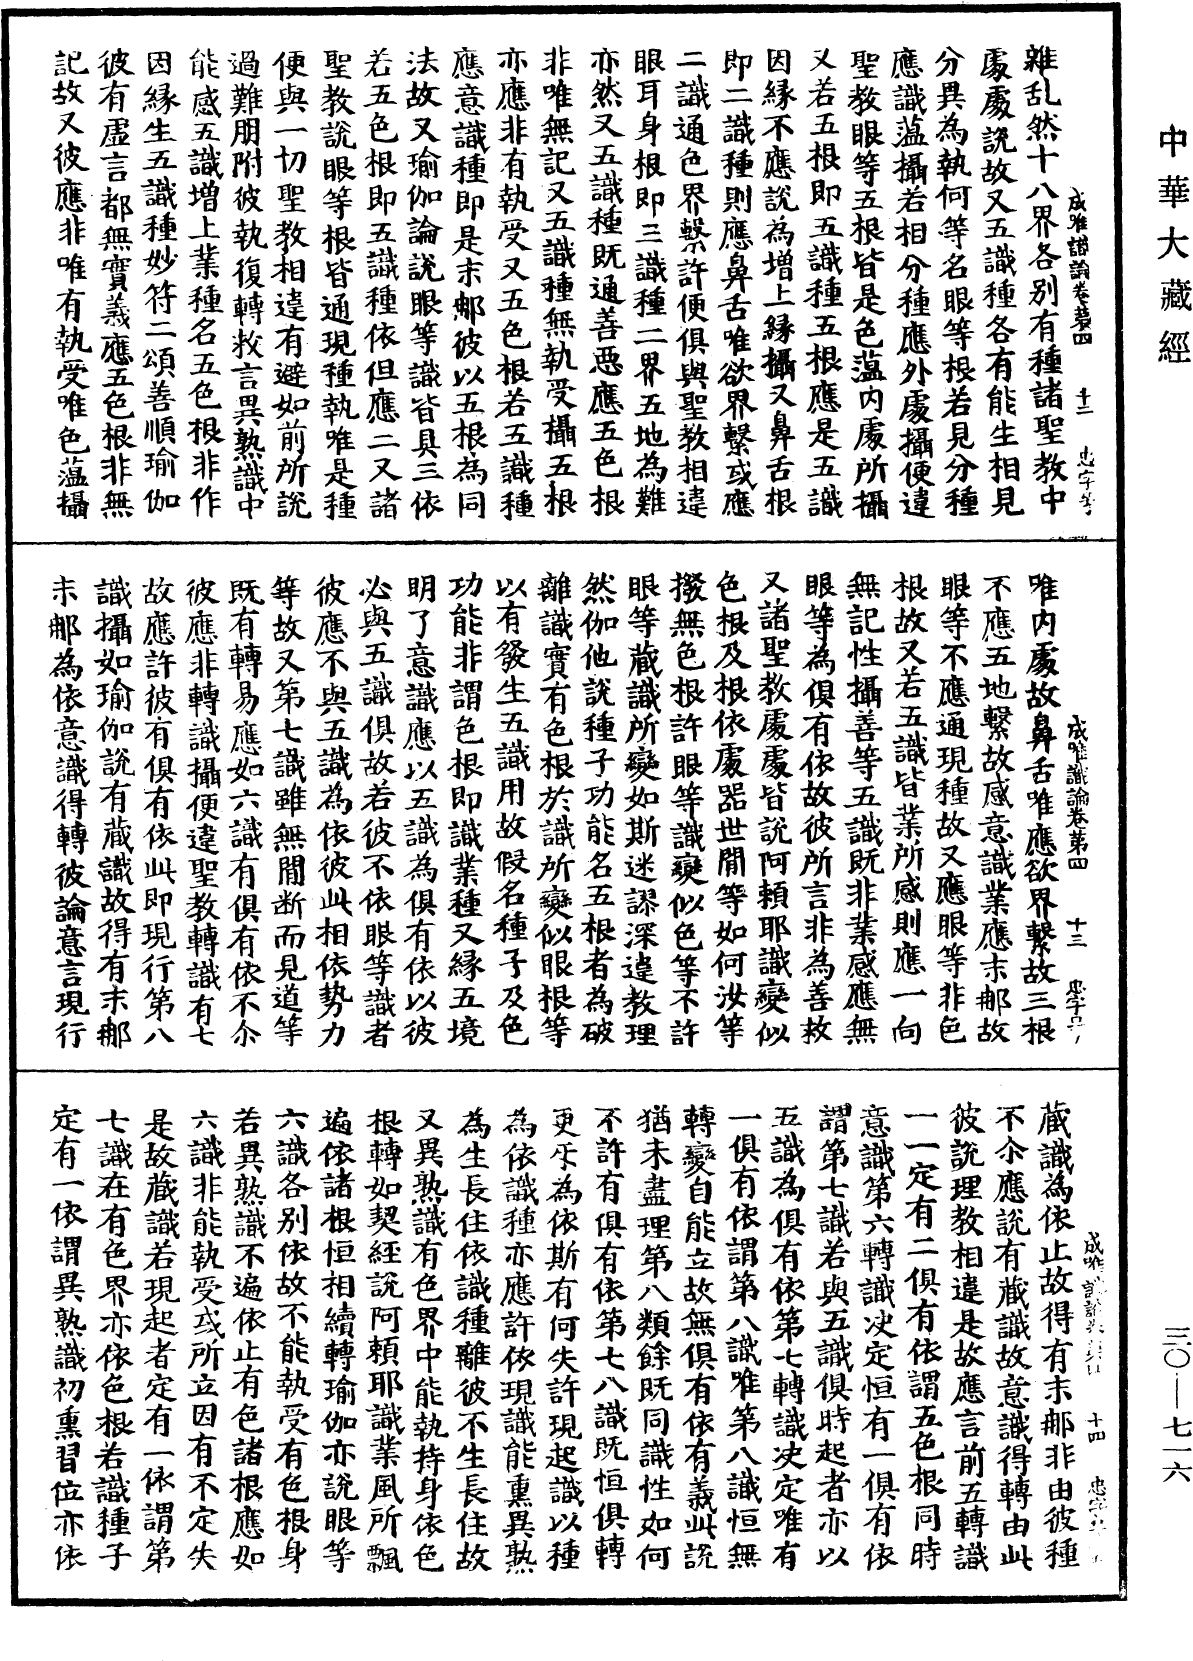 中華大藏經
雜乱然十八界各別有種諸聖教中
處處說故又五識種各有能生相見
分異為執何等名眼等根若見分種
應識蕰攝若相分種應外處攝便違
聖教眼等五根皆是色蕰內處所攝
又若五根即五識種五根應是五識
因緣不應說為增上緣攝又鼻舌根
即二識種則應鼻舌唯欲界繫或應
二識通色界繫許便俱與聖教相違
眼耳身根即三識種二界五地為難
亦然又五識種既通善惡應五色根
非唯無記又五識種無執受攝五根
亦應非有執受又五色根若五識種
應意識種即是末那彼以五根為同
法故又瑜伽論說眼等識皆具三依
若五色根即五識種依但應二又諸
聖教說眼等根皆通現種執唯是種
便與一切聖教相違有避如前所說
過難朋附彼執復轉救言異熟識中
能感五識增上業種名五色根非作
因緣生五識種妙符二頌善順瑜伽
彼有虛言都無實義應五色根非無
記故又彼應非唯有執受唯色蕰攝
成唯識論卷第四 十二 忠字号
唯內處故鼻舌唯應欲界繫故三根
不應五地繫故感意識業應末那故
眼等不應通現種故又應眼等非色
根故又若五識皆業所感則應一向
無記性攝善等五識既非業感應無
眼等為俱有依故彼所言非為善救
又諸聖教處處皆說阿賴耶識變似
色根及根依處器世間等如何汝等
撥無色根許眼等識變似色等不許
眼等藏識所變如斯迷謬深違教理
然伽他說種子功能名五根者為破
離識實有色根於識所變似眼根等
以有發生五識用故假名種子及色
功能非謂色根即識業種又緣五境
明了意識應以五識為俱有依以彼
必與五識俱故若彼不依眼等識者
彼應不與五識為依彼此相依勢力
等故又第七識雖無間断而見道等
既有轉易應如六識有俱有依不尒
彼應非轉識攝便違聖教轉識有七
故應許彼有俱有依此即現行第八
識攝如瑜伽說有藏識故得有末那
末那為依意識得轉彼論意言現行
成唯識論卷第四 十三 忠字号
藏識為依止故得有末那非由彼種
不尒應說有藏識故意識得轉由此
彼說理教相違是故應言前五轉識
一一定有二俱有依謂五色根同時
意識第六轉識决定恒有一俱有依
謂第七識若與五識俱時起者亦以
五識為俱有依第七轉識决定唯有
一俱有依謂第八識唯第八識恒無
轉變自能立故無俱有依有義此說
猶未盡理第八類餘既同識性如何
不許有俱有依第七八識既恒俱轉
更㸦為依斯有何失許現起識以種
為依識種亦應許依現識能熏異熟
為生長住依識種離彼不生長住故
又異熟識有色界中能執持身依色
根轉如契經說阿賴耶識業風所飄
遍依諸根恒相續轉瑜伽亦說眼等
六識各別依故不能執受有色根身
若異熟識不遍依止有色諸根應如
六識非能執受或所立因有不定失
是故藏識若現起者定有一依謂第
七識在有色界亦依色根若識種子
定有一依謂異熟識初熏習位亦依
十四
三〇—七一六